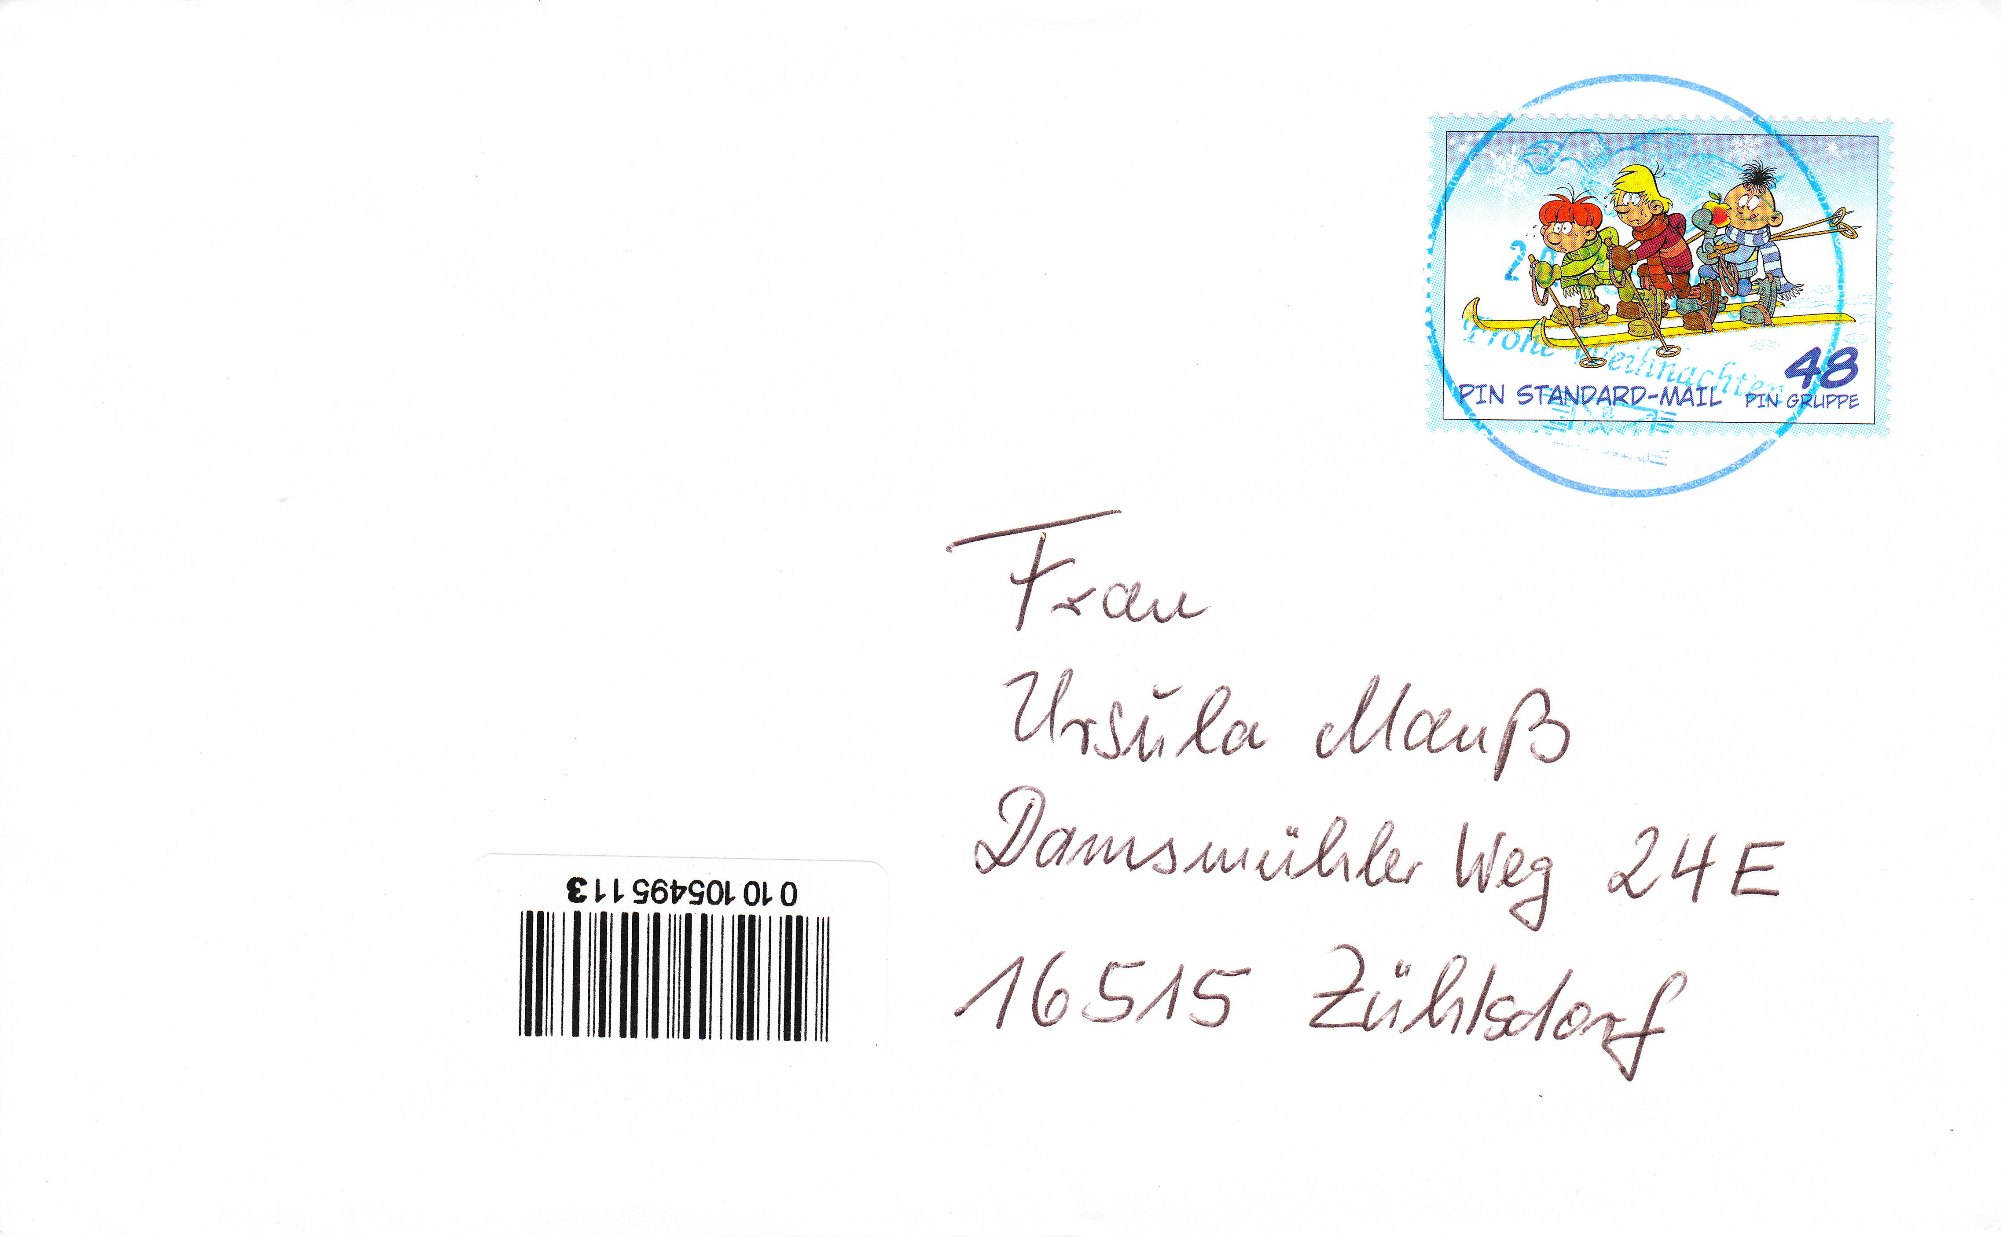 Frohe Weihnachten
48
PIN STANDARD-MAIL PIN GRUPPE
Frau
Ursula Mauß
Damsmühler Weg 24E
16515 Zühlsdorf
010 105495 113